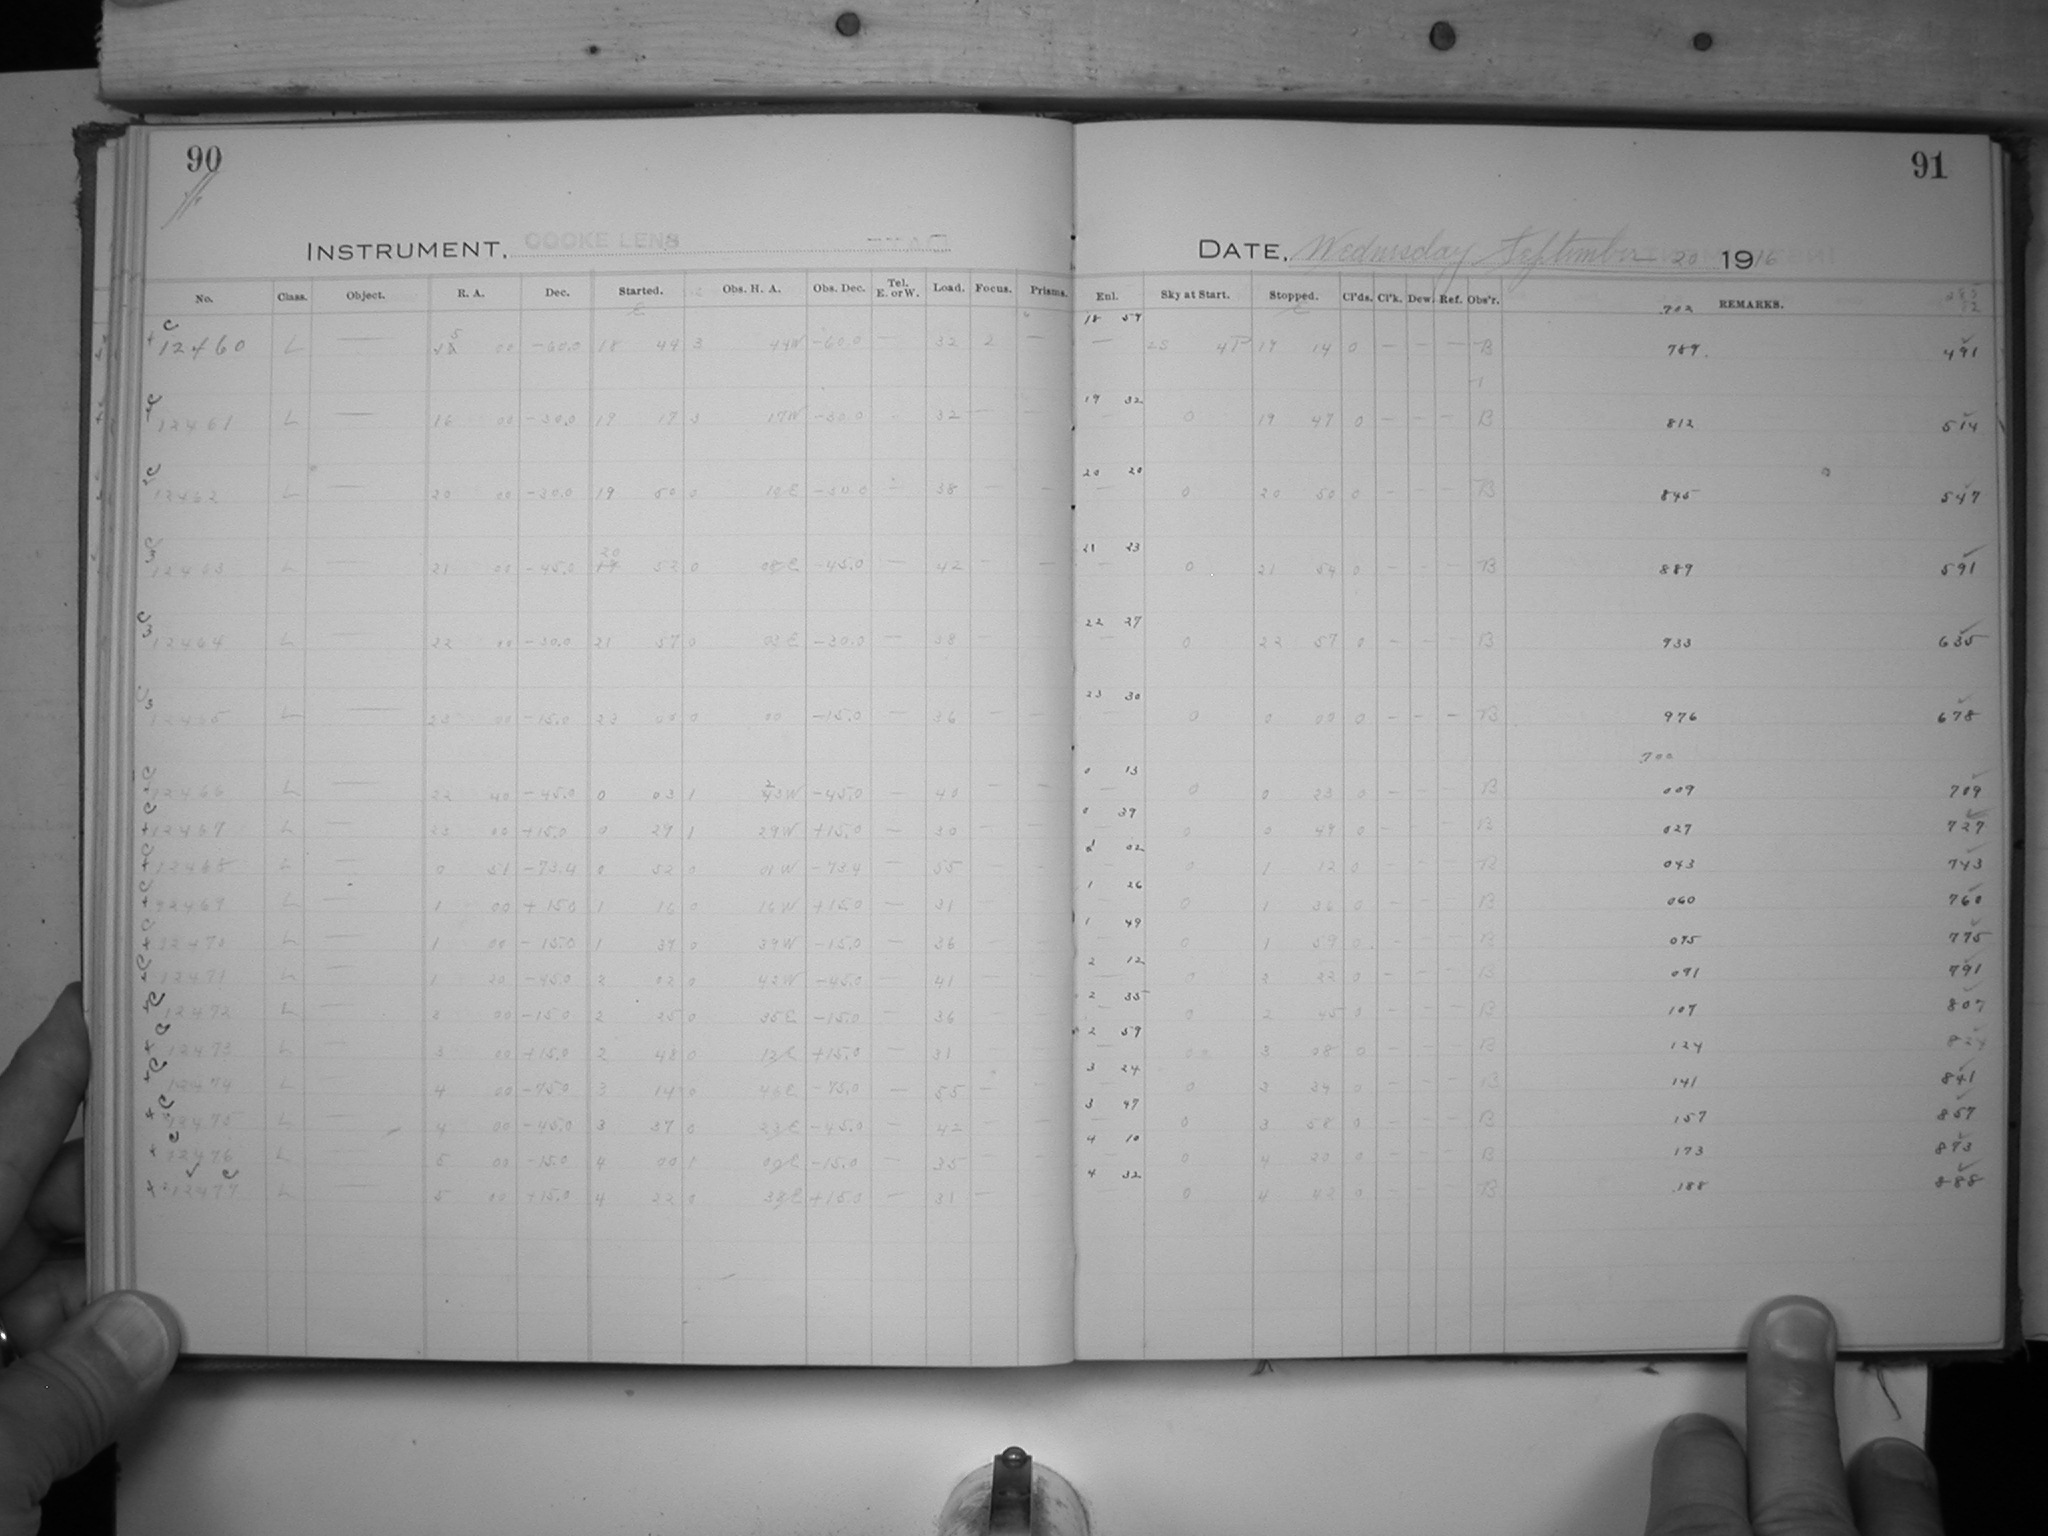 90
91
INSTRUMENT, COOKE LENS
DATE, Wednesday September 20 1916
No. Class. Object. R. A. Dec. Started. Obs. H. A. Obs. Dec. Tel. E. or W. Load. Focus. Prisms. Enl. Sky at Start. Stopped. Cl'ds. Cl'k. Dew. Ref. Obs'r. REMARKS.
18 59
12460 L — 00 -60.0 18 44 3 44W -60.0 — 32 2 — — 19 14 0 — — — B 789. 491
19 32
12461 L — 16 00 -30.0 19 17 3 17W -30.0 — 32 — — — 0 19 47 0 — — — B 812 514
20 20
12462 L — 20 00 -30.0 19 50 0 10E -30.0 — 38 — — — 0 20 50 0 — — — B 845 547
21 23
12463 L — 21 00 -45.0 20 52 0 08E -45.0 — 42 — — — 0 21 54 0 — — — B 889 591
22 27
12464 L — 22 00 -30.0 21 57 0 03E -30.0 — 38 — — 0 22 57 0 — — — B 933 635
23 30
12465 L — 23 00 -15.0 23 00 0 00 -15.0 — 36 — — — 0 0 00 0 — — — B 976 678
700
0 13
12466 L — 22 40 -45.0 0 03 1 W -45.0 — 40 — — — 0 0 23 0 — — — B 009 709
0 39
12467 L — 23 00 +15.0 0 29 1 29W +15.0 — 30 — — — 0 0 49 0 — — — B 027 727
02
12468 L — 0 51 -73.4 0 52 0 01W -73.4 — 55 — — — 0 1 12 0 — — — B 043 743
1 26
12469 L — 1 00 +15.0 1 16 0 16W +15.0 — 31 — — — 0 1 36 0 — — — B 060 760
1 49
12470 L — 1 00 -15.0 1 39 0 39W -15.0 — 36 — — — 0 1 59 0 — — — B 075 775
2 12
12471 L — 1 20 -45.0 2 02 0 42W -45.0 — 41 — — — 0 2 22 0 — — — B 091 791
2 35
12472 L — 3 00 -15.0 2 25 0 35E -15.0 — 36 — — — 0 2 45 0 — — — B 107 807
2 59
12473 L — 3 00 +15.0 2 48 0 12E +15.0 — 31 — — — 3 08 0 — — — B 124 824
3 24
12474 L — 4 00 -75.0 3 14 0 46E -75.0 — 55 — — — 0 3 34 0 — — — B 141 841
3 47
12475 L — 4 00 -45.0 3 37 0 23E -45.0 — 42 — — — 0 3 58 0 — — — B 157 857
4 10
12476 L — 5 00 -15.0 4 00 1 E -15.0 — 35 — — 0 4 20 0 — — — B 173 873
4 32
12477 L — 5 00 +15.0 4 22 0 38E +15.0 — 31 — — 0 4 42 0 — — — B 188 888